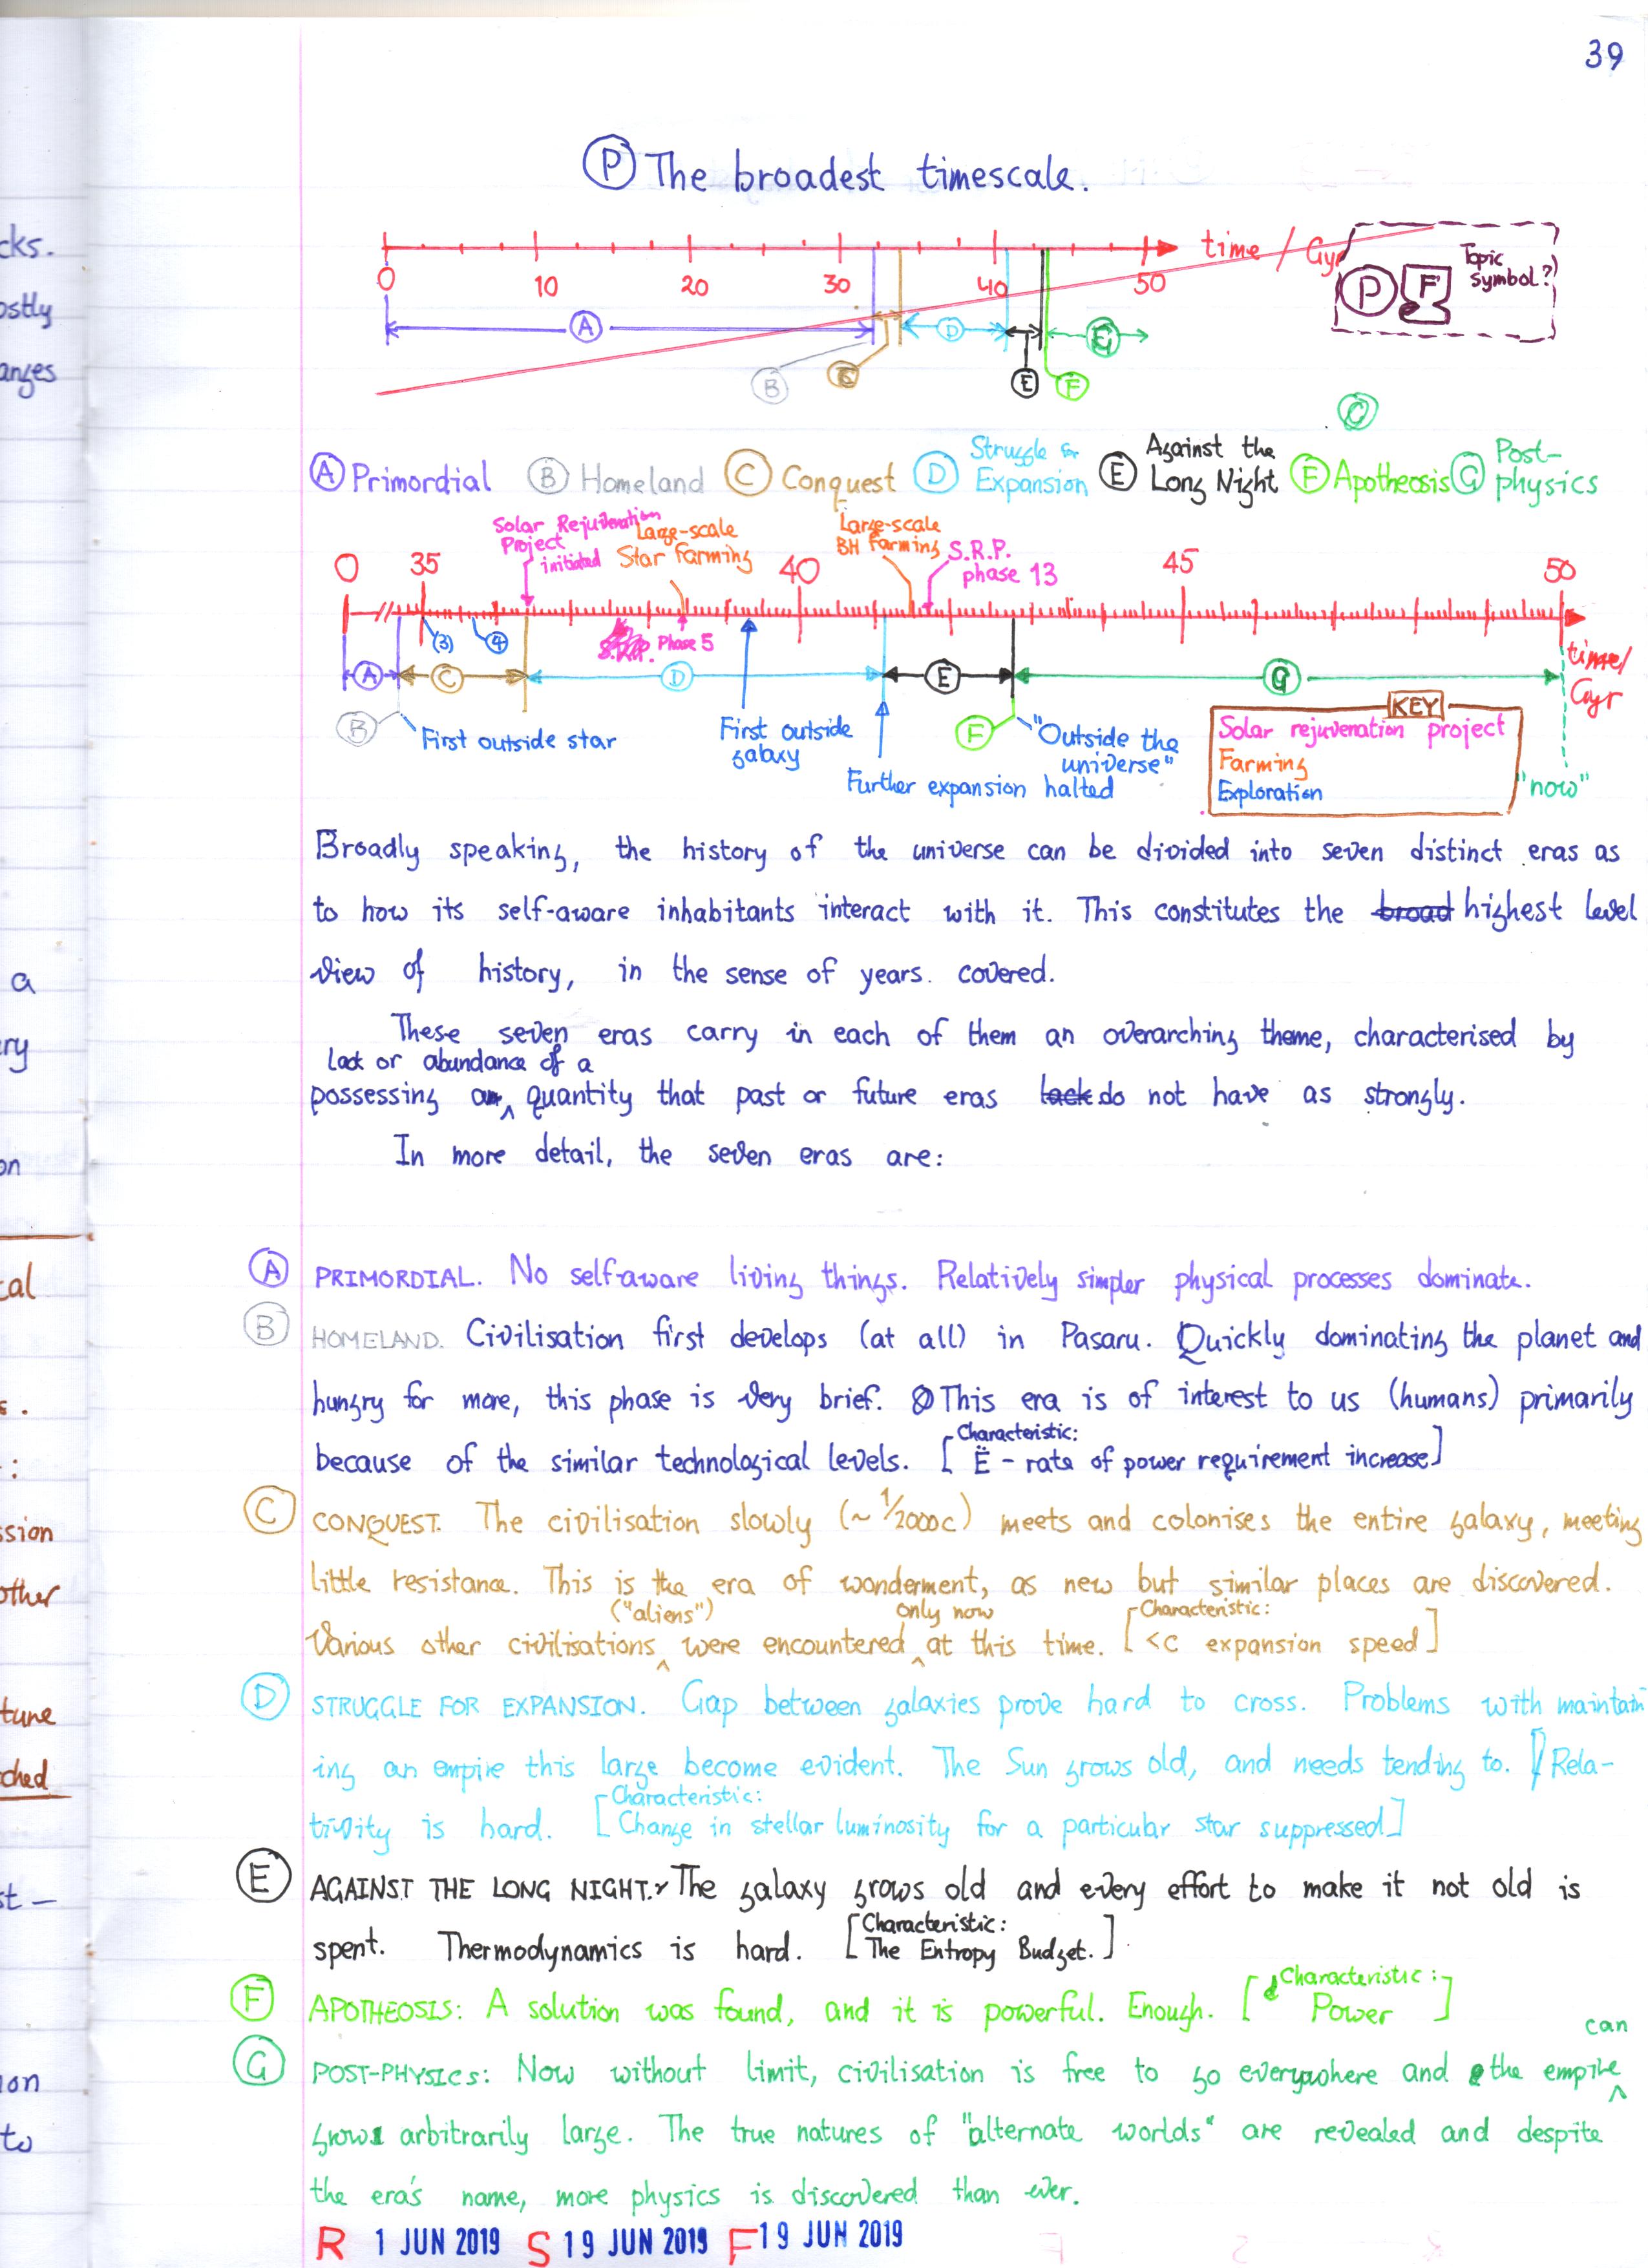 39
Ⓟ The broadest timescale.
time / Gyr
0 10 20 30 40 50
Ⓟ F Topic
symbol?
Ⓐ Ⓓ Ⓖ
Ⓑ Ⓒ Ⓔ Ⓕ
Ⓐ Primordial Ⓑ Homeland Ⓒ Conquest Ⓓ Struggle for Expansion Ⓔ Against the Long Night Ⓕ Apotheosis Ⓖ Post-physics
Solar Rejuvenation
Project
initiated
Large-scale
Star farming
Large-scale
BH farming
S.R.P.
phase 13
0 35 40 45 50
(3) ④
S.R.P. Phase 5
time/
Gyr
Ⓐ Ⓒ Ⓓ Ⓔ Ⓖ
Ⓑ First outside star
First outside
galaxy
Further expansion halted
Ⓕ "Outside the
universe"
KEY
Solar rejuvenation project
Farming
Exploration
"now"
Broadly speaking, the history of the universe can be divided into seven distinct eras as
to how its self-aware inhabitants interact with it. This constitutes the broad highest level
view of history, in the sense of years. covered.
These seven eras carry in each of them an overarching theme, characterised by
lack or abundance of a
possessing an quantity that past or future eras lack do not have as strongly.
In more detail, the seven eras are:
Ⓐ PRIMORDIAL. No self-aware living things. Relatively simpler physical processes dominate.
Ⓑ HOMELAND. Civilisation first develops (at all) in Pasaru. Quickly dominating the planet and
hungry for more, this phase is very brief. This era is of interest to us (humans) primarily
because of the similar technological levels. [Characteristic: Ë - rate of power requirement increase]
Ⓒ CONQUEST. The civilisation slowly (~ 1/2000c) meets and colonises the entire galaxy, meeting
little resistance. This is the era of wonderment, as new but similar places are discovered.
("aliens") only now
Various other civilisations were encountered at this time. [Characteristic: <c expansion speed]
Ⓓ STRUGGLE FOR EXPANSION. Gap between galaxies prove hard to cross. Problems with maintain
ing an empire this large become evident. The Sun grows old, and needs tending to. Rela-
tivity is hard. [Characteristic: Change in stellar luminosity for a particular star suppressed]
Ⓔ AGAINST THE LONG NIGHT. The galaxy grows old and every effort to make it not old is
spent. Thermodynamics is hard. [Characteristic: The Entropy Budget.]
Ⓕ APOTHEOSIS: A solution was found, and it is powerful. Enough. [Characteristic: Power]
can
Ⓖ POST-PHYSICS: Now without limit, civilisation is free to go everywhere and the empire
grow arbitrarily large. The true natures of "alternate worlds" are revealed and despite
the era's name, more physics is discovered than ever.
R 1 JUN 2019 S 19 JUN 2019 F 19 JUN 2019
cks.
ostly
anges
a
ry
on
cal
s.
:
ssion
other
tune
ched
st-
ion
to